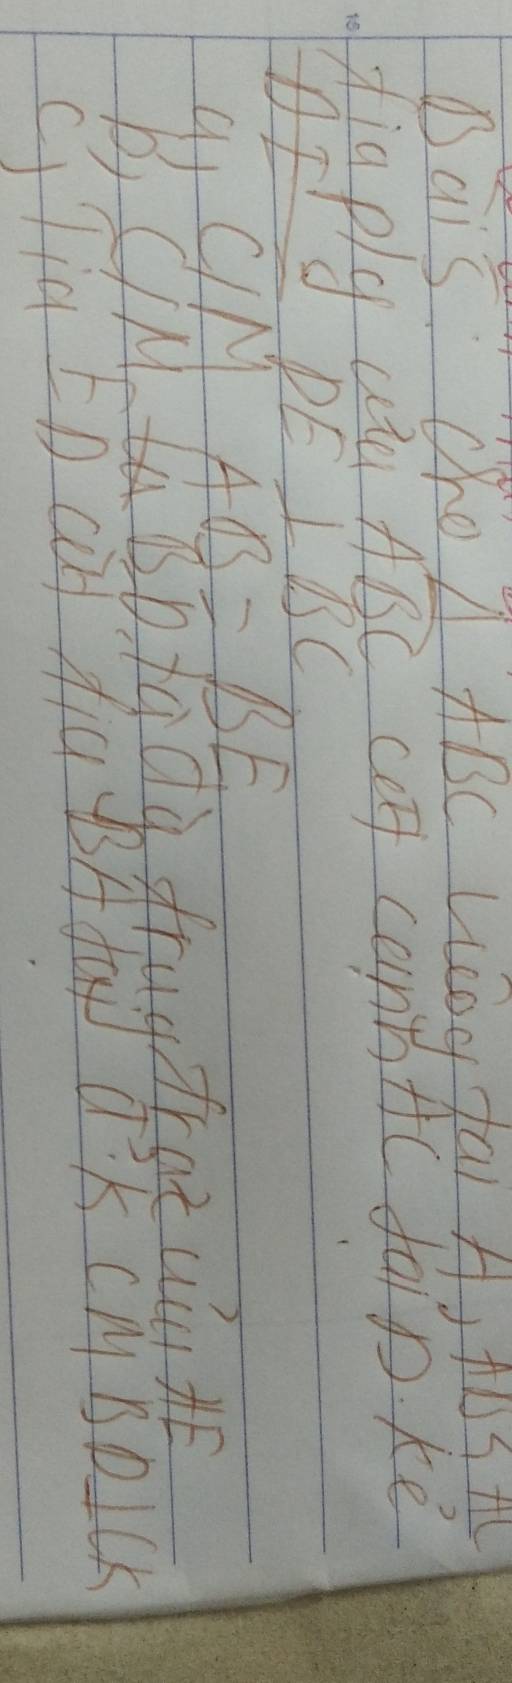 Bài 5. Cho Δ ABC vuông tại A, AB < AC
tia p/g của ABC cắt cạnh AC tại D. Kẻ
DE ⊥ BC
a, C/M AB = BE
b, C/M BD là đg trug trực của AE
c, Tia ED cắt tia BA tại đ' K CM BD⊥CK